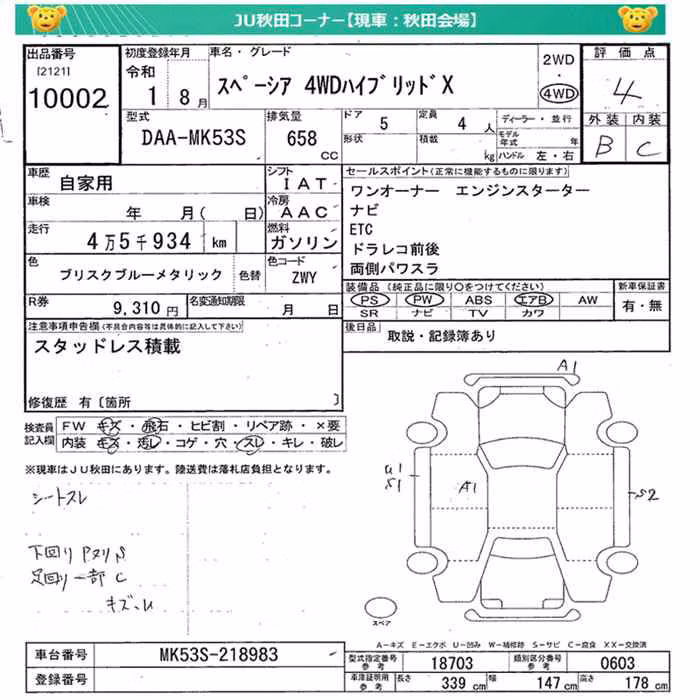 JU秋田コーナー【現車：秋田会場】
出品番号
[2121]
10002
初度登録年月
令和
1 8月
車名・グレード
スペーシア 4WDハイブリッドX
2WD
4WD
評価点
4
外装 内装
B C
型式
DAA-MK53S
排気量
658 cc
ドア 5
定員 4 人
形状
積載 kg
ディーラー・並行
モデル年式 年
ハンドル 左・右
車歴
自家用
シフト
IAT
セールスポイント(正常に機能するものに限ります)
ワンオーナー エンジンスターター
ナビ
ETC
ドラレコ前後
両側パワスラ
車検
年 月( 日)
冷房
AAC
走行
4万5千934 km
燃料
ガソリン
色
ブリスクブルーメタリック
色替
色コード
ZWY
装備品(純正品に限り○をつけてください)
PS PW ABS エアB AW
SR ナビ TV カワ
新車保証書
有・無
R券
9,310 円
名変通知期限
月 日
後日品
取説・記録簿あり
注意事項申告欄(不具合内容等は具体的に記入して下さい)
スタッドレス積載
修復歴 有〔箇所 〕
検査員記入欄
FW キズ・飛石・ヒビ割・リペア跡・×要
内装 キズ・汚レ・コゲ・穴・スレ・キレ・破レ
※現車はJU秋田にあります。陸送費は落札店負担となります。
シートスレ
下回りPヌリS
足回り一部C
キズ・U
A1
U1
S1
A1
S2
スペア
A－キズ E－エクボ U－凹み W－補修跡 S－サビ C－腐食 XX－交換済
車台番号
MK53S-218983
登録番号
型式指定番号
参考
18703
類別区分番号
参考
0603
車庫証明用
参考
長さ 339 cm
幅 147 cm
高さ 178 cm